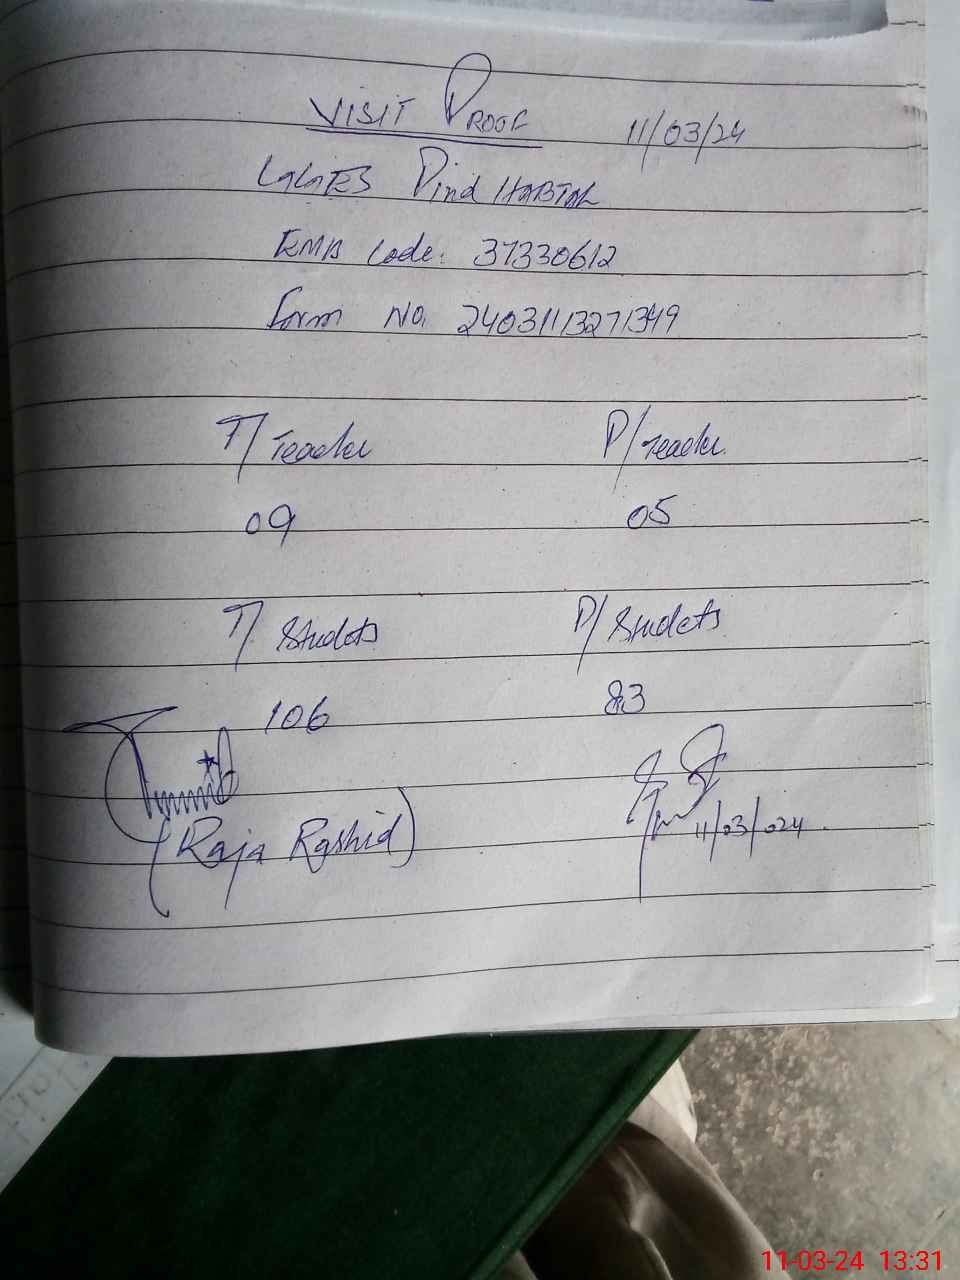 VISIT PROOF 11/03/24
GGES Pind HABTAL
EMIS Code: 37330612
Form No. 24031113271349
T/ Teacher P/ Teacher
09 05
T/ Students P/ Students
106 83
(Raja Rashid) 11/03/024
11-03-24 13:31